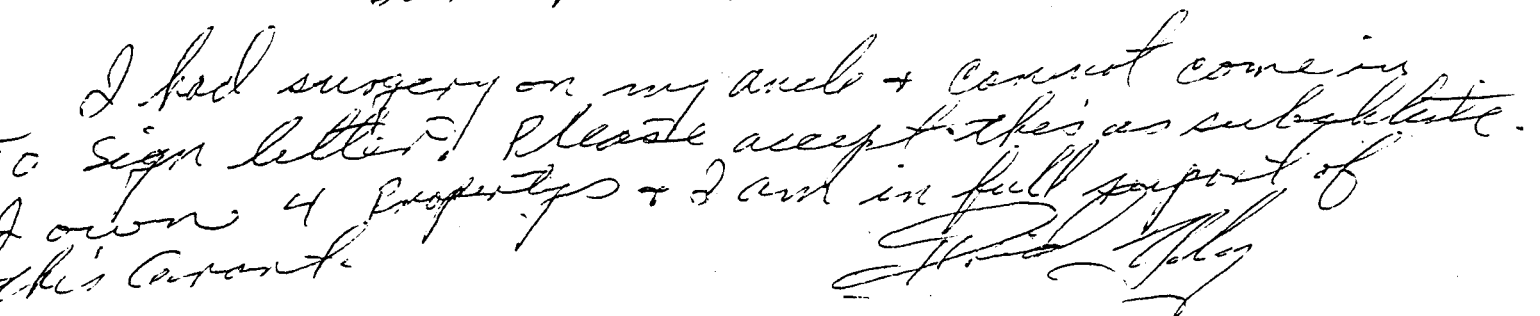 I had surgery on my ancle + cannot come in
to sign letter. Please accept this as substitute.
I own 4 propertys + I am in full suport of
this Grant.